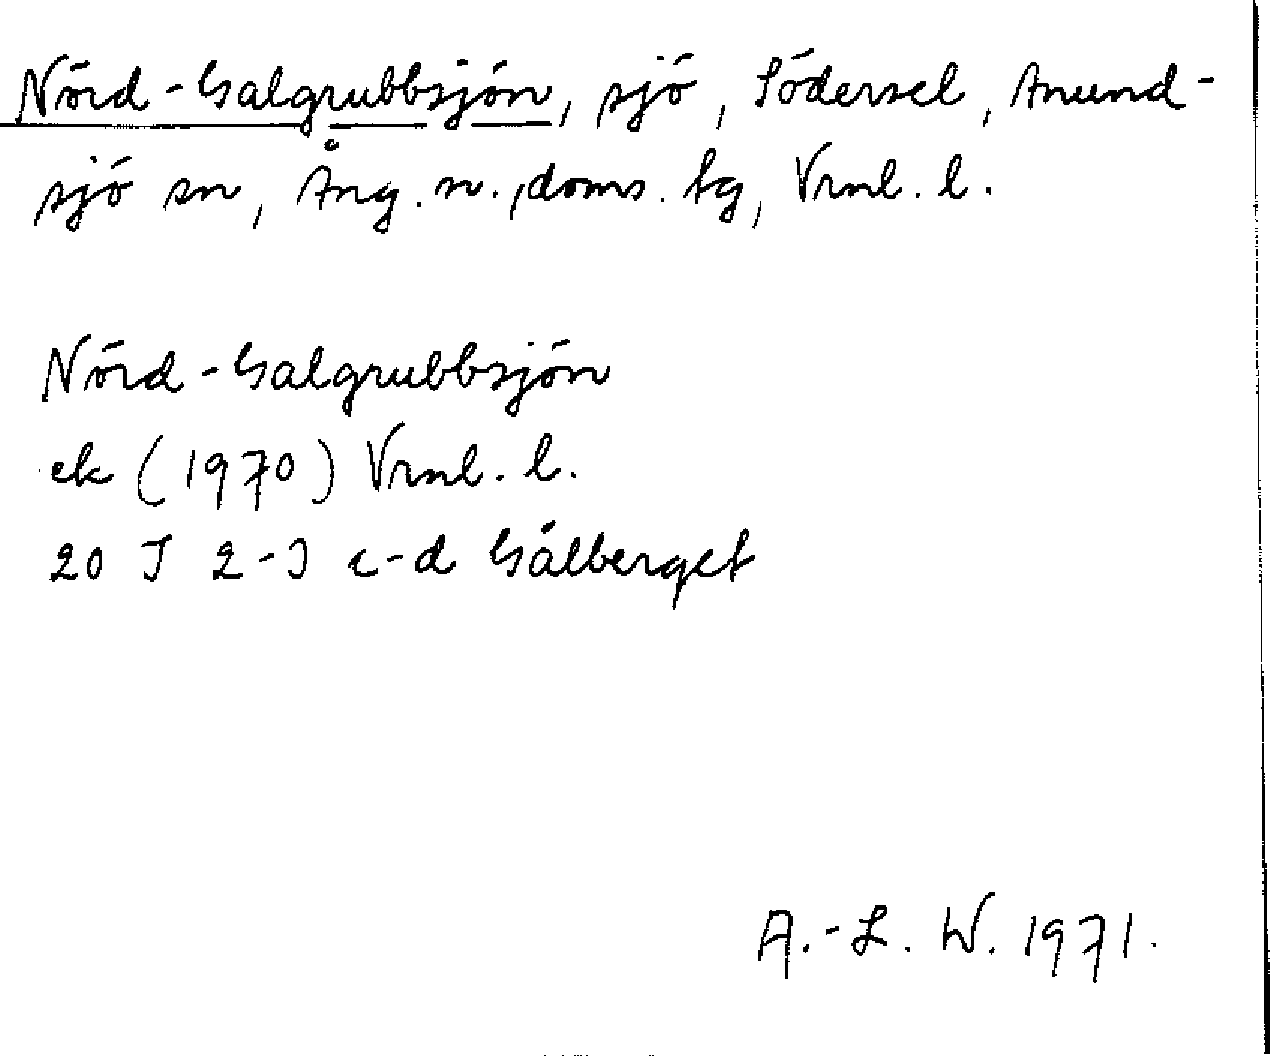 Nörd-Galgrubbsjön, sjö, Södersel, Anund-
sjö sn, Ång. n., doms. tg, Vrnl. l.
Nörd-Galgrubbsjön
ek (1970) Vrnl. l.
20 J 2-3 c-d Gålberget
A.-L. W. 1971.